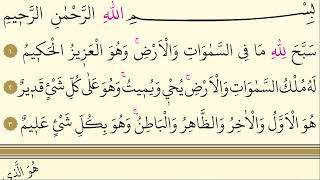 بِسْمِ اللّٰهِ الرَّحْمٰنِ الرَّحٖيمِ
سَبَّحَ لِلّٰهِ مَا فِى السَّمٰوَاتِ وَالْاَرْضِۚ وَهُوَ الْعَزٖيزُ الْحَكٖيمُ ١
لَهُ مُلْكُ السَّمٰوَاتِ وَالْاَرْضِۚ يُحْيٖ وَيُمٖيتُۚ وَهُوَ عَلٰى كُلِّ شَيْءٍ قَدٖيرٌ ٢
هُوَ الْاَوَّلُ وَالْاٰخِرُ وَالظَّاهِرُ وَالْبَاطِنُۚ وَهُوَ بِكُلِّ شَيْءٍ عَلٖيمٌ ٣
هُوَ الَّذٖى